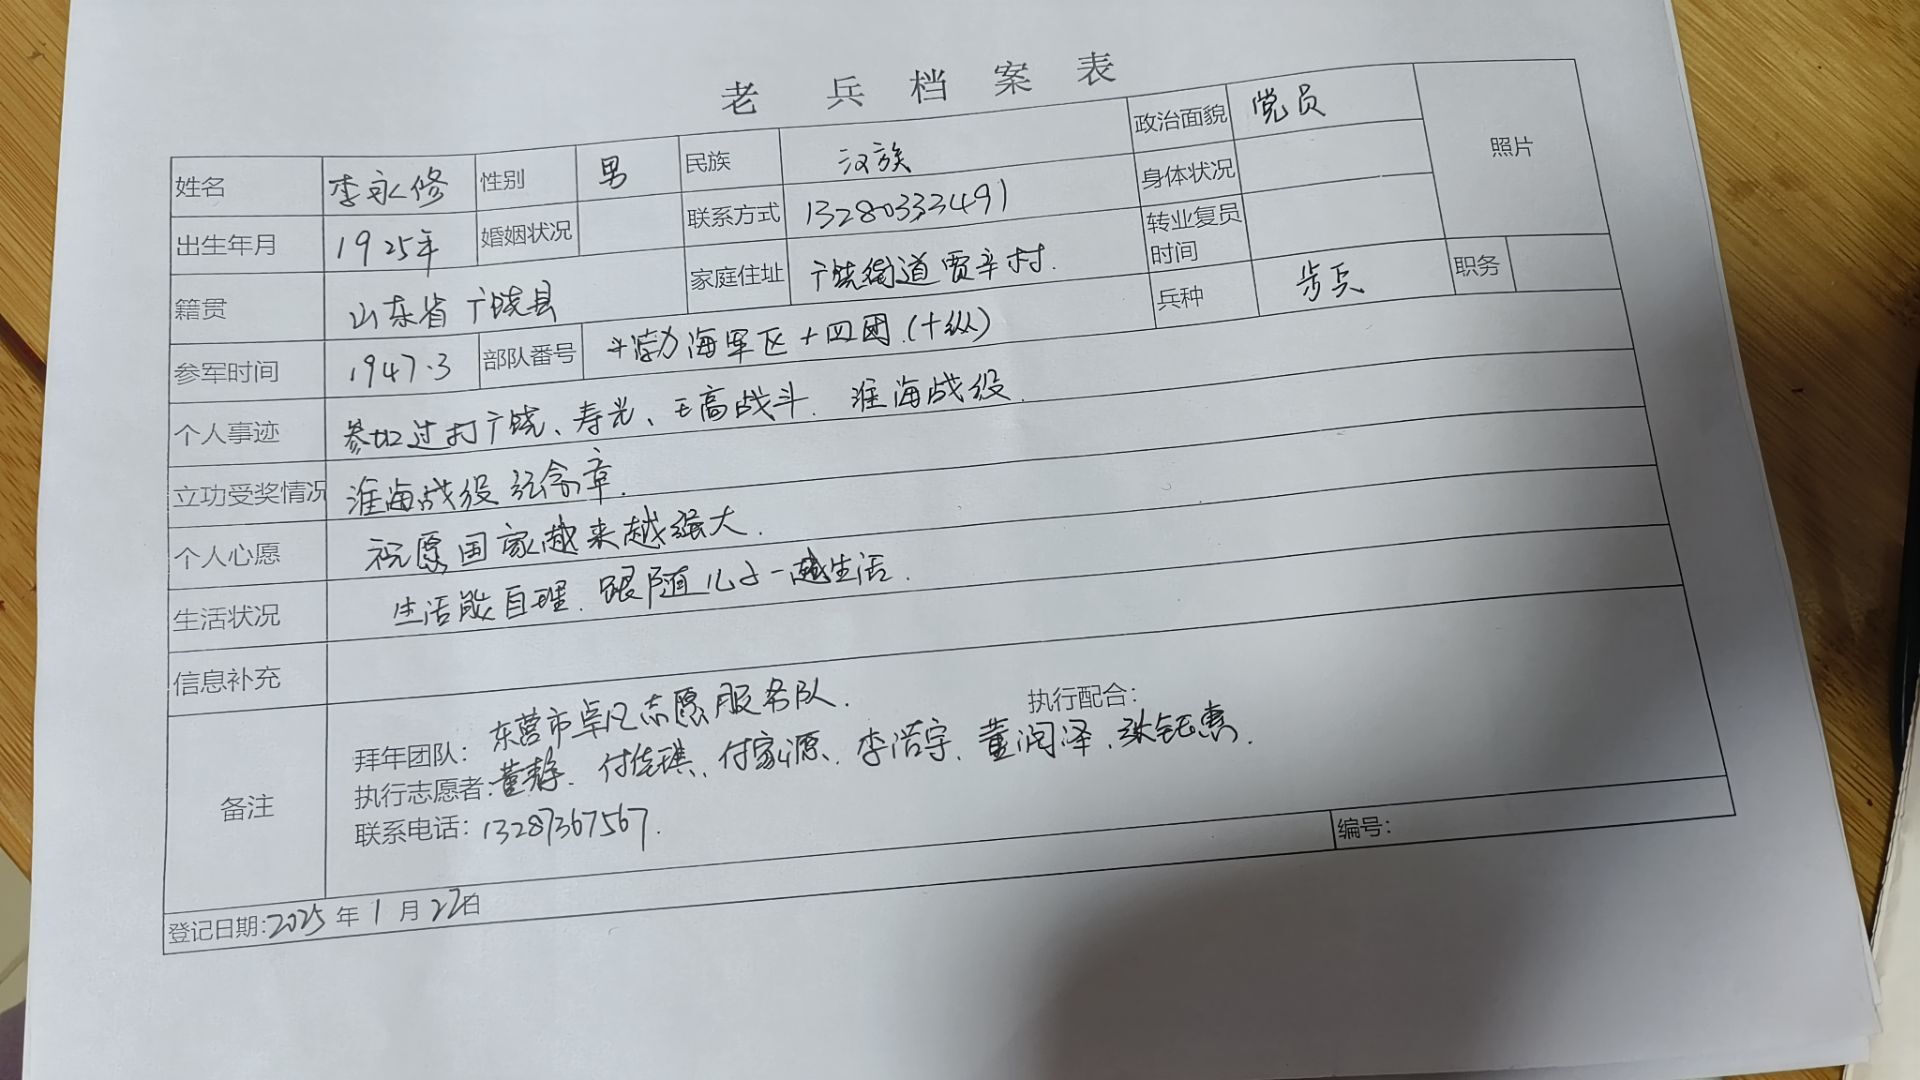 老兵档案表
姓名 李永修 性别 男 民族 汉族 政治面貌 党员 照片
出生年月 1925年 婚姻状况 联系方式 13280333491 身体状况
籍贯 山东省广饶县 家庭住址 广饶街道贾辛村. 转业复员时间
参军时间 1947.3 部队番号 渤海军区十四团(十纵) 兵种 步兵 职务
个人事迹 参加过打广饶、寿光、王高战斗. 淮海战役.
立功受奖情况 淮海战役纪念章.
个人心愿 祝愿国家越来越强大.
生活状况 生活能自理. 跟随儿子一起生活.
信息补充
备注
拜年团队: 东营市卓凡志愿服务队. 执行配合:
执行志愿者: 董静. 付家源、李浩宇、董润泽、张钰惠.
联系电话: 13287367567.
编号:
登记日期: 2025年1月22日